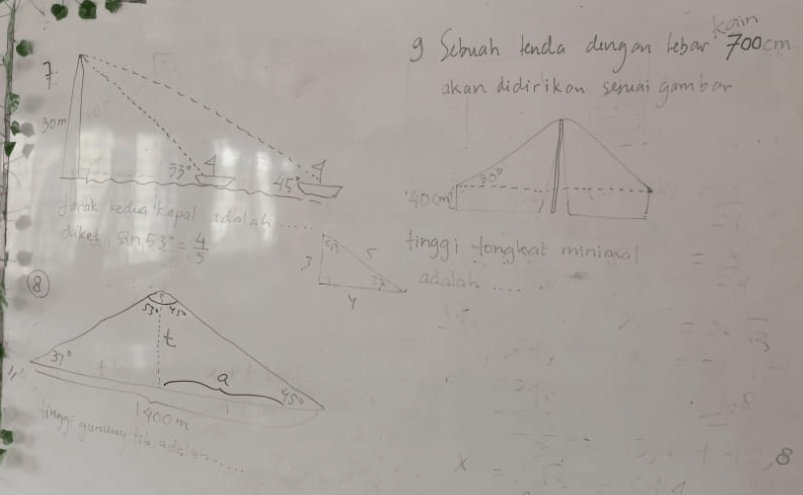 7.
30m
53°
45°
Jarak kedua kapal adalah ......
diket. sin 53° = 4/5
3
5
4
8
53° 45°
t
37°
a
45°
1400 m
tinggi gunung tsb adalah .....
9 Sebuah tenda dengan lebar kain 700 cm
akan didirikan sesuai gambar
30°
40 cm
tinggi tongkat minimal
adalah ....